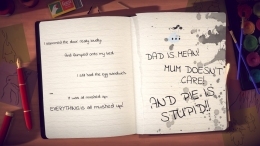 I slammed the door really loudly
And flumped onto my bed.
I just had the egg windows
It was all mushed up.
EVERYTHING is all mushed up!
DAD IS MEAN!
MUM DOESN'T
CARE!
AND PIE IS
STUPID!!